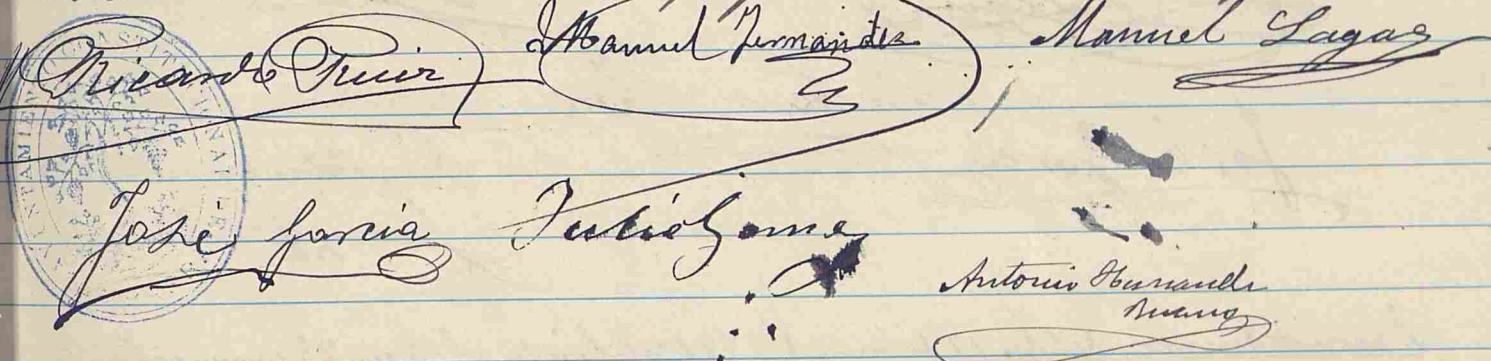 Ricardo Ruiz Manuel Fernandez Manuel Lagas
José Garcia Julio Gomez
Antonio Hernande
Bueno